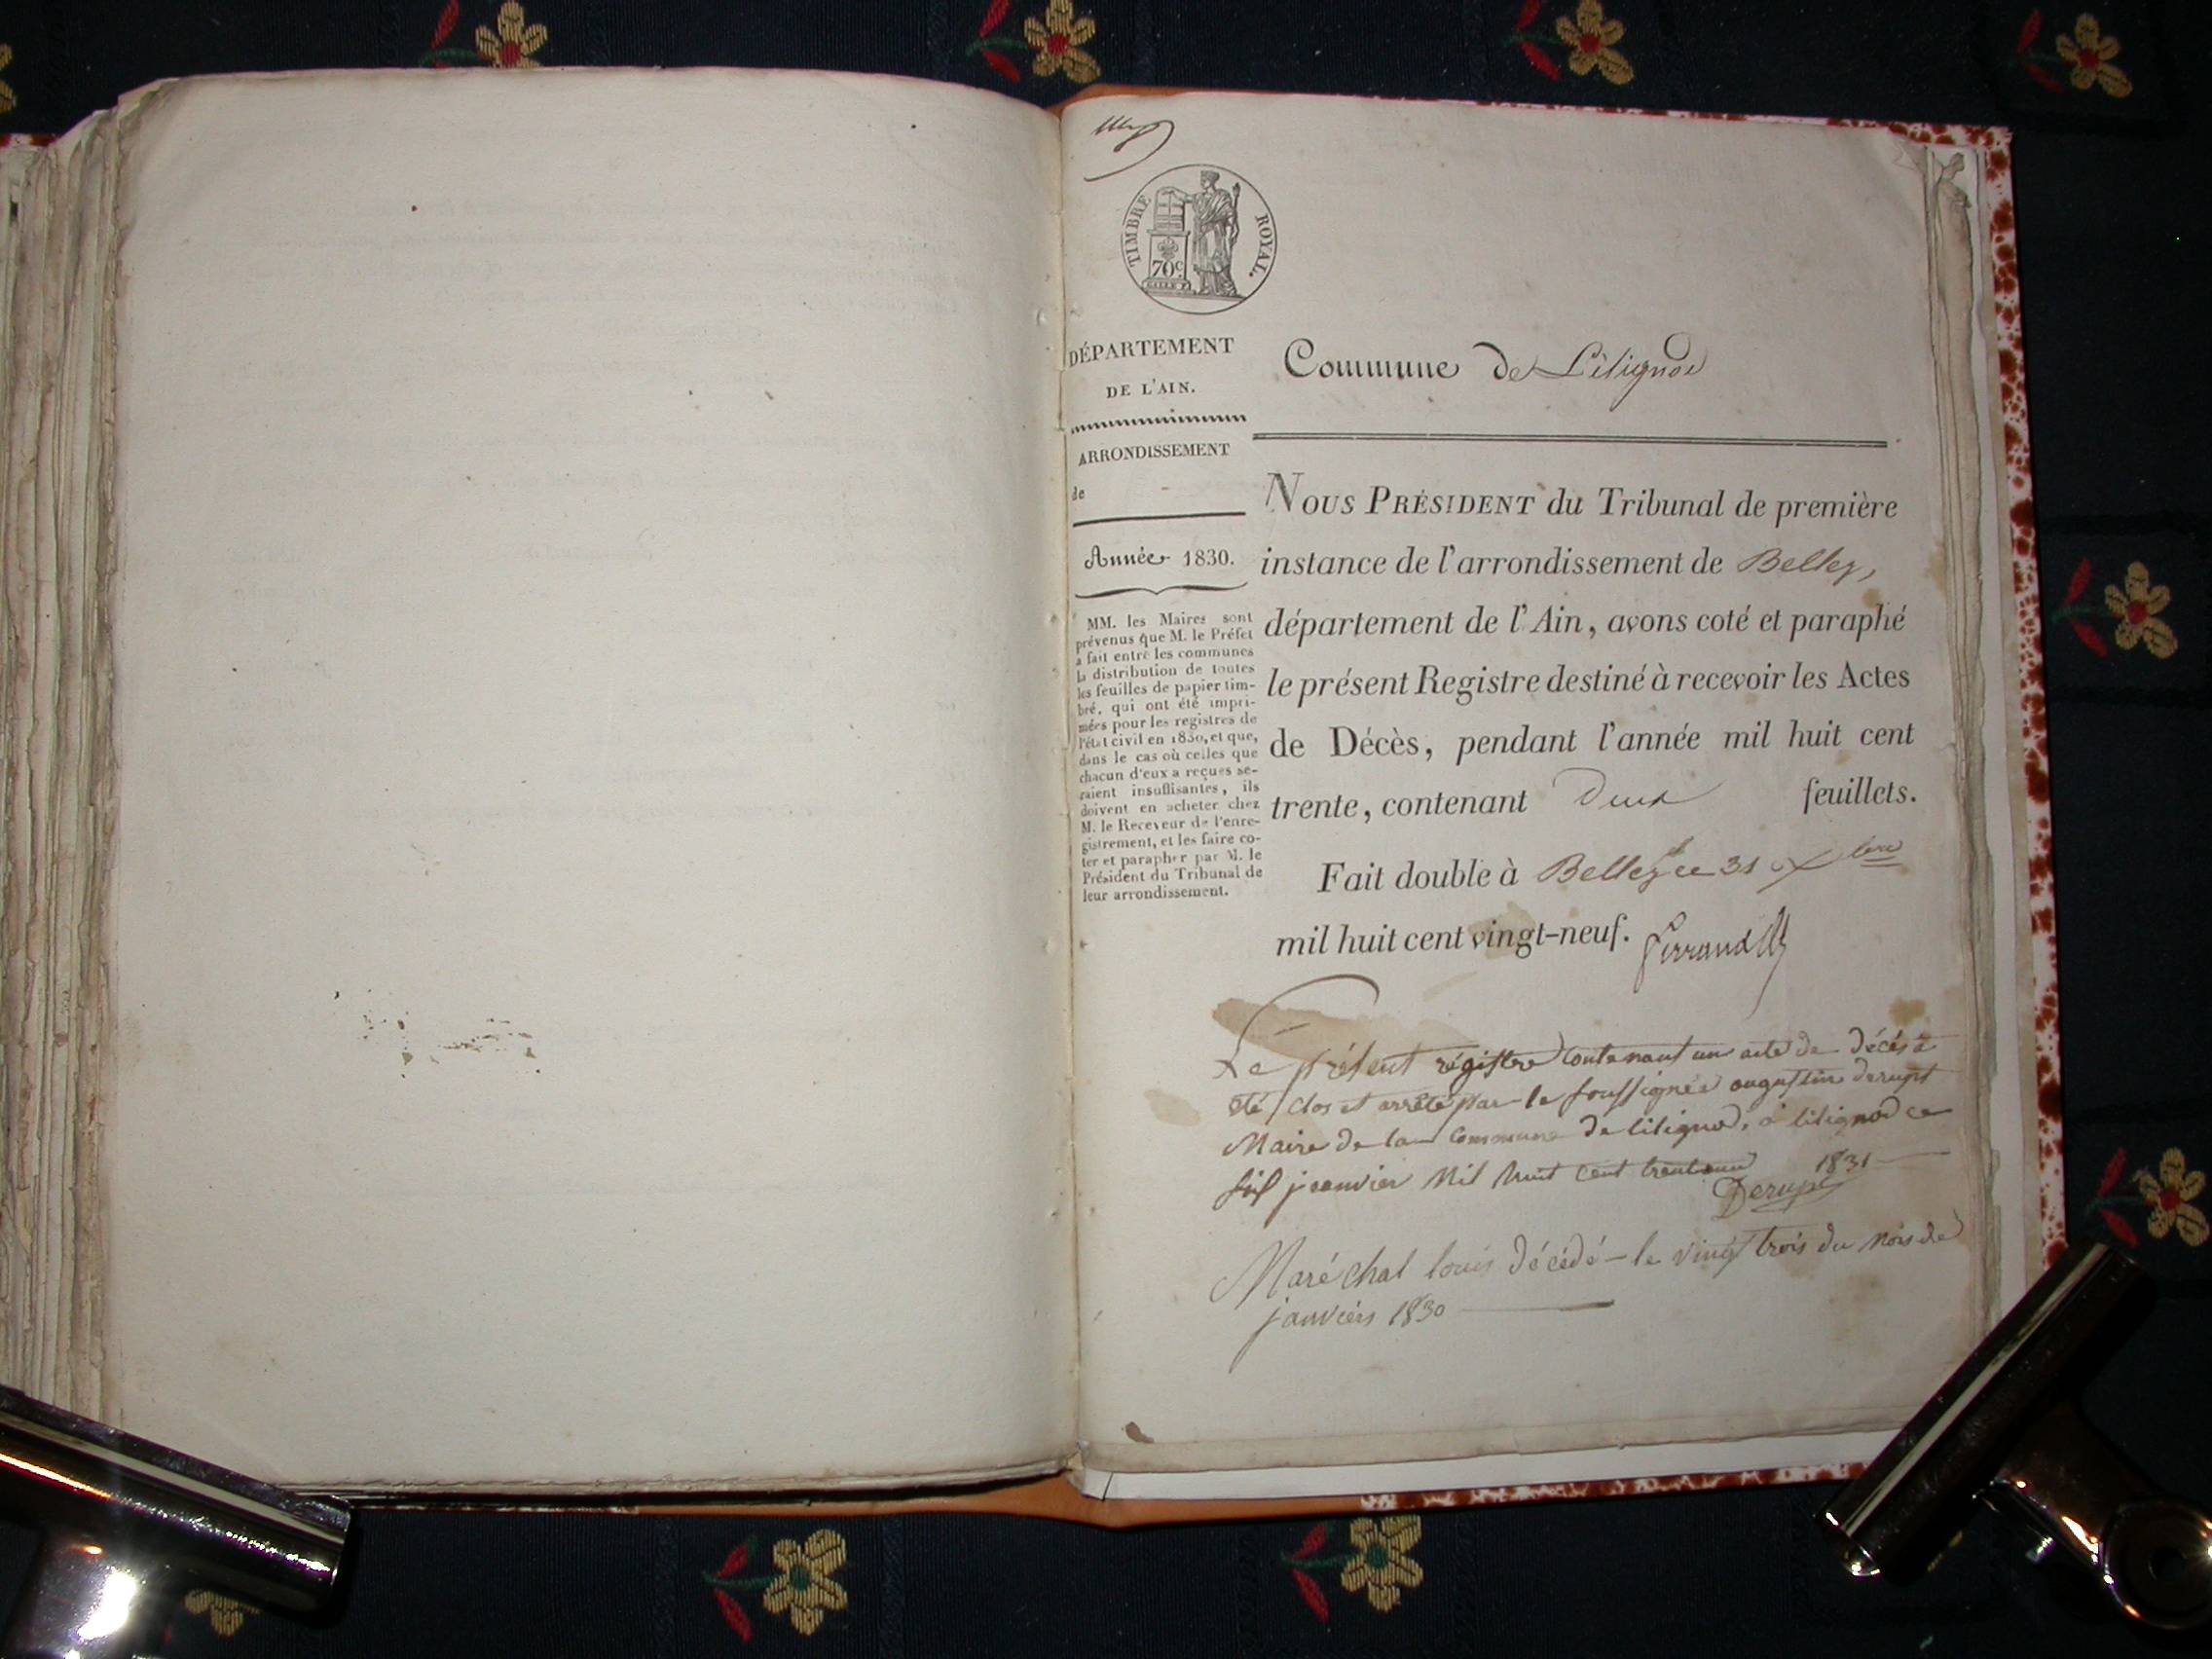 TIMBRE ROYAL.
70c
DÉPARTEMENT
DE L'AIN.
ARRONDISSEMENT
de
Année 1830.
MM. les Maires sont
prévenus que M. le Préfet
a fait entre les communes
la distribution de toutes
les feuilles de papier tim-
bré, qui ont été impri-
mées pour les registres de
l'état civil en 1830, et que,
dans le cas où celles que
chacun d'eux a reçues se-
raient insuffisantes, ils
doivent en acheter chez
M. le Receveur de l'enre-
gistrement, et les faire co-
ter et parapher par M. le
Président du Tribunal de
leur arrondissement.
Commune de Lilignod
NOUS PRÉSIDENT du Tribunal de première
instance de l'arrondissement de Belley,
département de l'Ain, avons coté et paraphé
le présent Registre destiné à recevoir les Actes
de Décès, pendant l'année mil huit cent
trente, contenant Deux feuillets.
Fait double à Belley ce 31 Xbre
mil huit cent vingt-neuf.
Le présent régistre contenant un acte de décès à
été clos et arrêté par le soussignée augustin derupt
Maire de la commune de lilignod, à lilignod ce
six janvier Mil huit cent trent un 1831
Derupt
Maréchal louis décédé - le vingt trois du mois de
janviers 1830